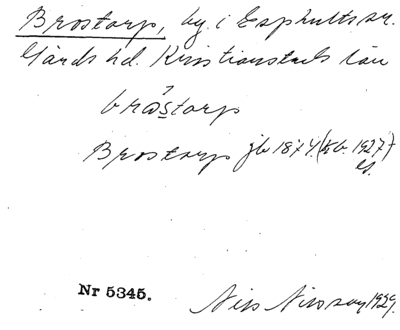 Brostorp, by i Esphults sn.
Gärds hd. Kristianstads län
bråstorp
Brostorp jb 1874. (Kb. 1927)
Nr 5345.
Nils Nilsson 1929.